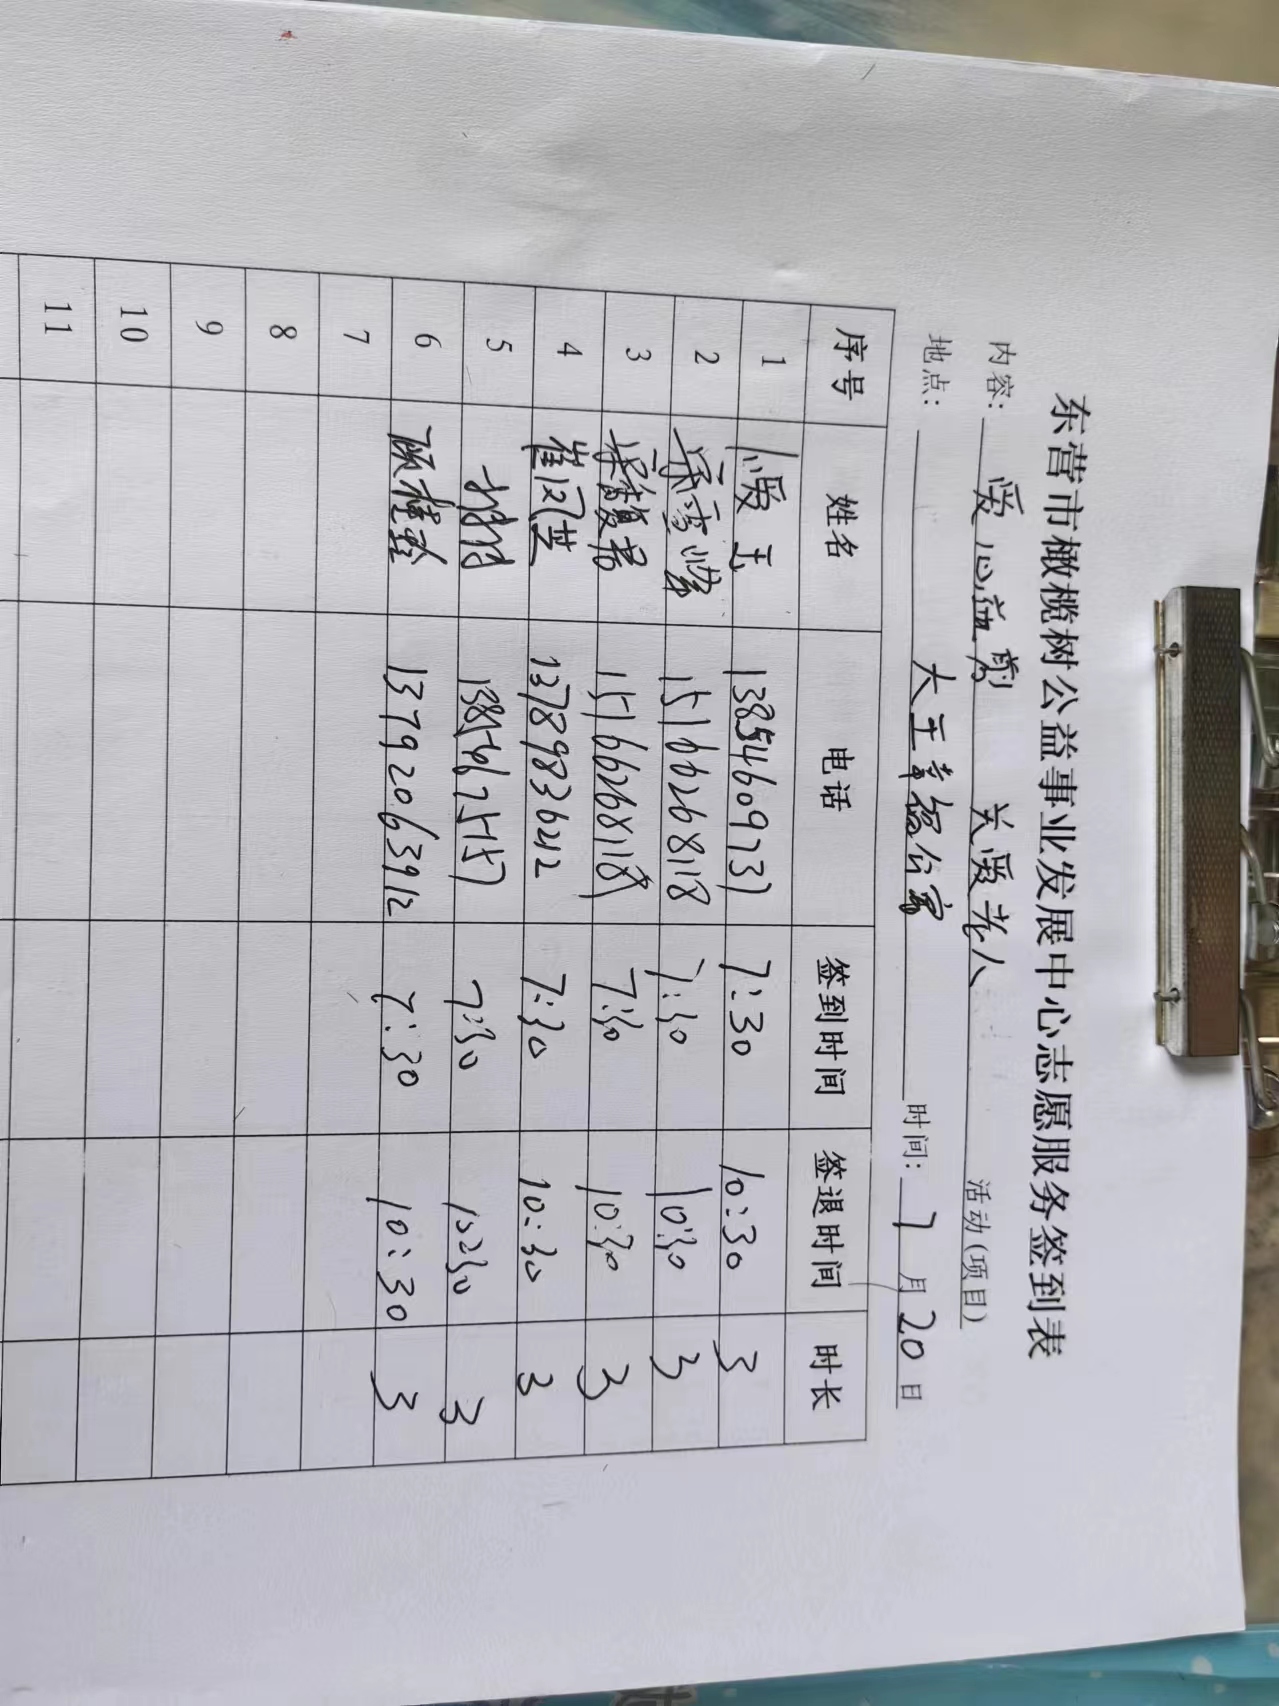 东营市橄榄树公益事业发展中心志愿服务签到表
内容: 爱心益剪 关爱老人 活动(项目)
地点: 大王幸福公寓 时间: 7月20日
序号 姓名 电话 签到时间 签退时间 时长
1 13854609731 7:30 10:30 3
2 15166268118 7:30 10:30 3
3 15166268118 7:30 10:30 3
4 崔汉芝 13789836212 7:30 10:30 3
5 7:30 10:30 3
6 顾桂玲 13792063912 7:30 10:30 3
7
8
9
10
11